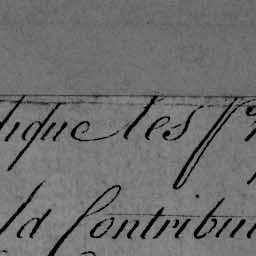 ique les
d Contribu